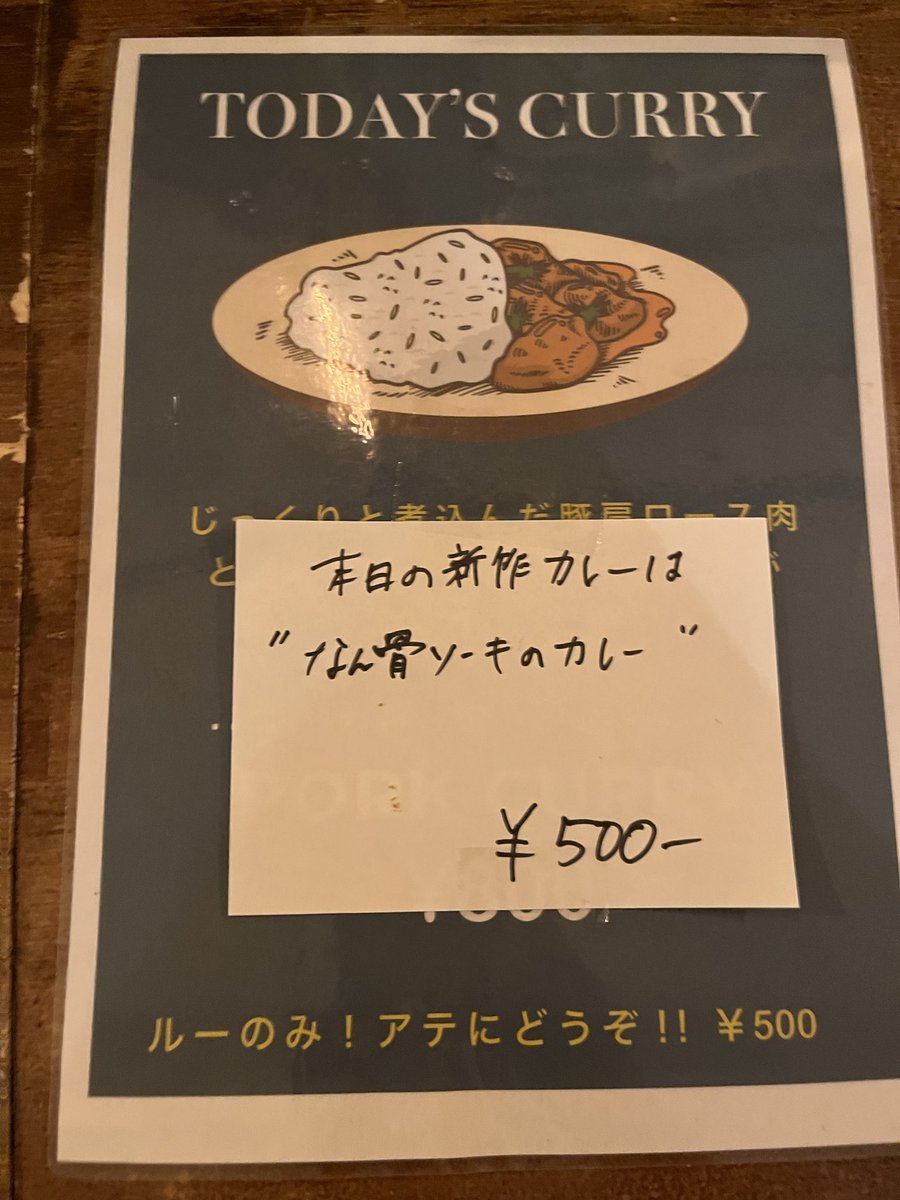 TODAY'S CURRY
じっくりと煮込んだ豚肩ロース肉
と
本日の新作カレーは
"なん骨ソーキのカレー"
¥500-
ルーのみ！アテにどうぞ!! ¥500